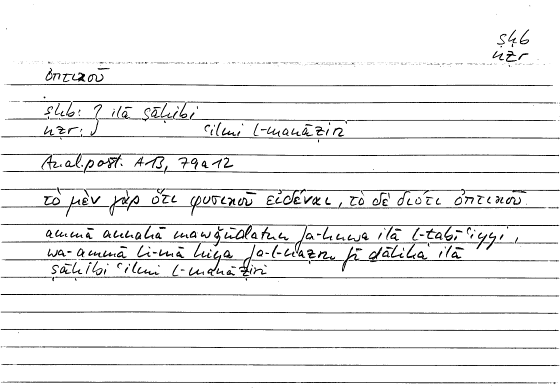 ṣḥb
nẓr
ὀπτικοῦ
ṣḥb: } ilā ṣāḥibi
nẓr: } ʿilmi l-manāẓiri
Anal. post. A 13, 79a12
τὸ μὲν γὰρ ὅτι φυσικοῦ εἰδέναι, τὸ δὲ διότι ὀπτικοῦ
ammā annahā mawǧūdatun fa-huwa ilā l-ṭabīʿiyyi,
wa-ammā li-mā hiya fa-l-naẓru fī ḏālika ilā
ṣāḥibi ʿilmi l-manāẓiri